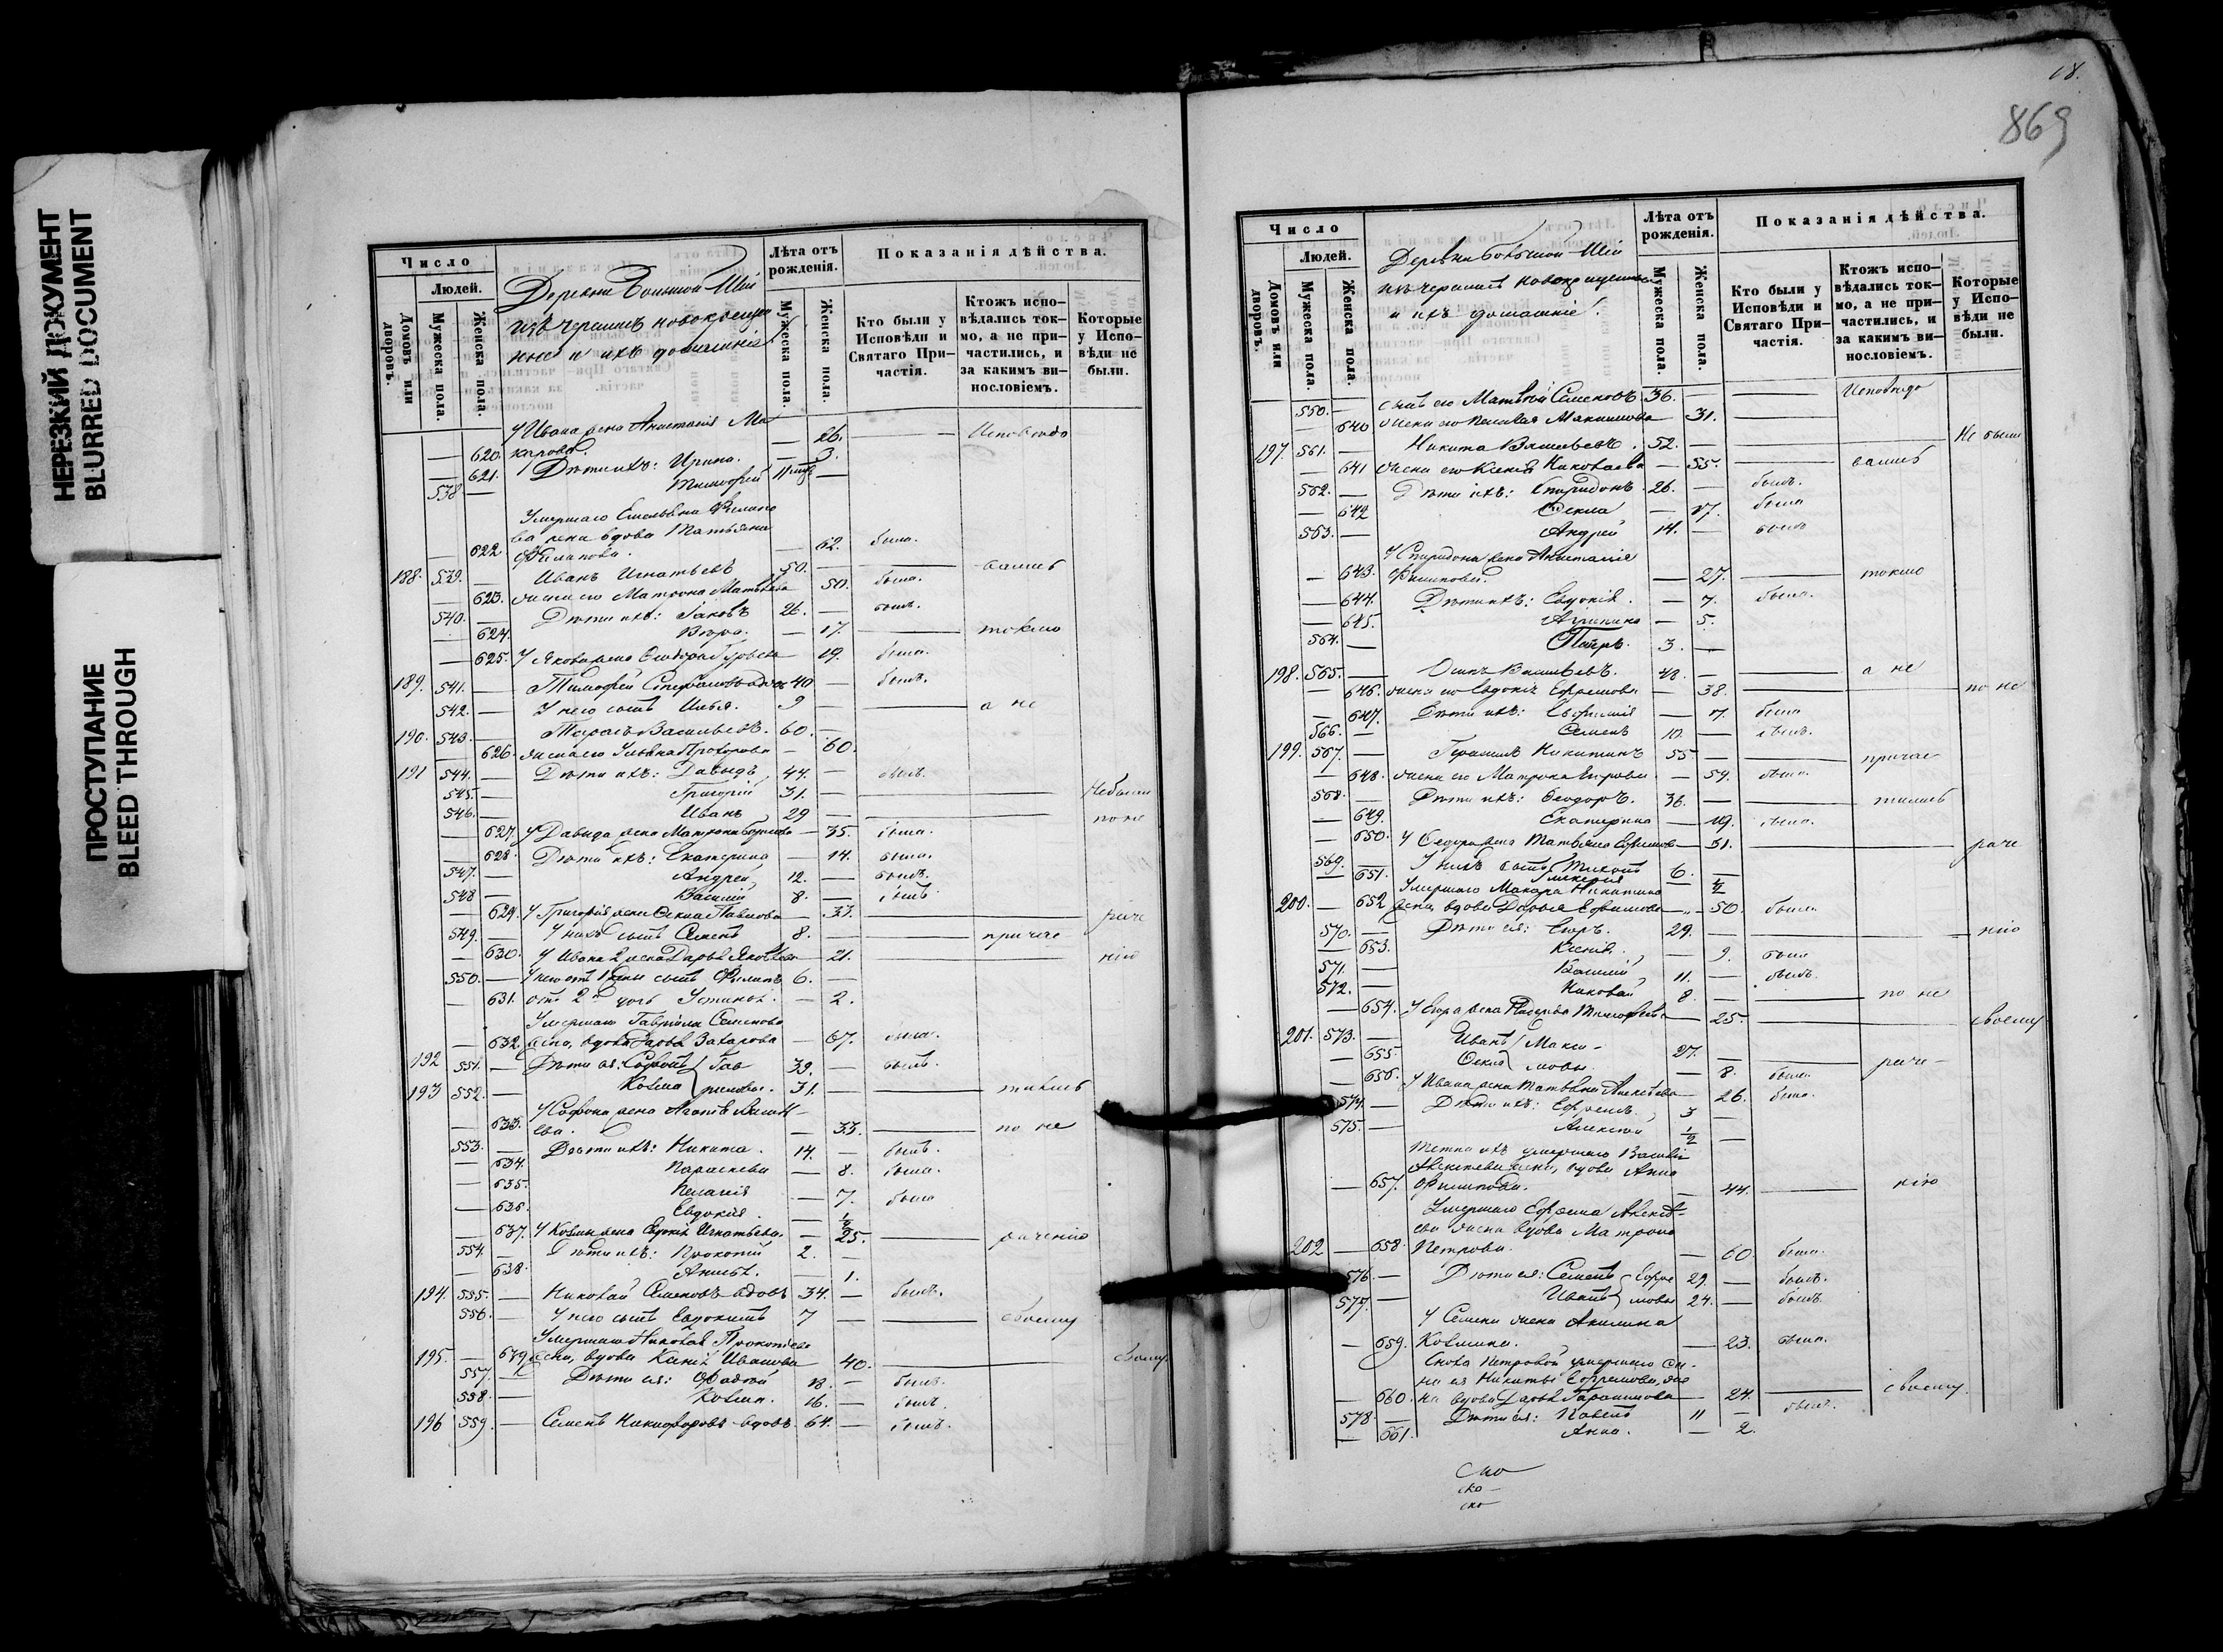 НЕРЕЗКИЙ ДОКУМЕНТ
BLURRED DOCUMENT
ПРОСТУПАНИЕ
BLEED THROUGH
Число
Людей.
Домовъ или дворовъ.
Мужеска пола.
Женска пола.
Деревни Большой Шіи
изъ черемисъ новокрещен
ные и ихъ домашніе.
Лѣта отъ рожденія.
Мужеска пола.
Женска пола.
Показанія дѣйства.
Кто были у Исповѣди и Святаго Причастія.
Ктожъ исповѣдались токмо, а не причастились, и за какимъ винословіемъ.
Которые у Исповѣди не были.
У Ивана жена Анастасія Ма
— 620. карова. — 26. — Исповѣдо
— 621. Дѣти ихъ: Ирина. — 3.
538 — Тимофей 11 —
Умершаго Емельяна Филипо
ва жена вдова Татьяна
— 622. Филипова. — 62. была.
188. 539. — Иванъ Игнатьевъ 50. — вались
— 623. жена его Матрона Матвѣева 50. была.
540. — Дѣти ихъ: Іаковъ 26. — былъ.
— 624. Вѣра. — 17. — токмо
— 625. У Якова жена Ѳеодора Гурьева 19. была.
189. 541. — Тимофей Степановъ вдовъ 40 — былъ.
542. — У него сынъ Илья. 9 — а не
190. 543. — Тарасъ Васильевъ. 60. —
— 626. жена его Ульяна Прохорова — 60.
191 544. — Дѣти ихъ: Давыдъ 44. — былъ.
545. — Григорій 31. — Небыли
546. — Иванъ 29 — по не
— 627. У Давыда жена Матрона — 35. была.
— 628. Дѣти ихъ: Екатерина — 14. была.
547. — Андрей 12. — былъ.
548 — Василій 8. — былъ
— 629. У Григорія жена Ѳекла Павлова — 33. — раче
549. — У нихъ сынъ Семенъ 8. — приче
— 630. У Ивана 2 жена Дарья Яковлева — 21. — нію
550. — У него отъ 1 жены сынъ Филипъ 6. —
— 631. отъ 2й дочь Устинья. — 2.
Умершаго Гавріила Семенова
— 632. жена, вдова Дарья Захарова — 67. была.
192 551. — Дѣти ея: Софонъ Гав 39. — былъ.
193 552. — Козма риловы. 31. — тились
У Софона жена Агапія
— 633. ева. — 33. — по не
553. — Дѣти ихъ: Никита. 14. — былъ.
— 634. Параскева — 8. была.
— 635. Пелагія — 7. была
— 636. Евдокія. — 1/2
— 637. У Козмы жена Евдокія Игнатьева. — 25. — рачению
554. — Дѣти ихъ: Прокопій 2. —
— 638. Анисья. — 1.
194. 555. — Николай Семеновъ вдовъ 34. — былъ.
556. — У него сынъ Евдокимъ 7 — своему
Умершаго Николая Прокопіева
195. — 639 жена, вдова Ксенія Иванова — 40. — своему
557. — Дѣти ея: Фадей 18. — былъ.
558. — Козма. 16. — былъ.
196 559. — Семенъ Никифоровъ вдовъ. 64. — былъ.
68.
869
Число
Людей.
Домовъ или дворовъ.
Мужеска пола.
Женска пола.
Деревни Большой Шіи
изъ черемисъ новокрещенные
и ихъ домашніе.
Лѣта отъ рожденія.
Мужеска пола.
Женска пола.
Показанія дѣйства.
Кто были у Исповѣди и Святаго Причастія.
Ктожъ исповѣдались токмо, а не причастились, и за какимъ винословіемъ.
Которые у Исповѣди не были.
550. — сынъ его Матвѣй Семеновъ 36. — Исповѣдо
— 640 жена его Пелагея Максимова — 31. —
197. 561. — Никита Васильевъ. 52. — Не были
— 641 жена его Ксенія Николаева — 55. — вались
562. — Дѣти ихъ: Спиридонъ. 26. — былъ.
— 642 Ѳекла — 17. была
563. — Андрей 14. — былъ
У Спиридона жена Анастасія
— 643. Филипова. — 27. — токмо
— 644. Дѣти ихъ: Евдокія. — 7. была.
— 645. Агрипина — 5.
564. — Петръ. 3. —
198. 565. — Осипъ Васильевъ. 48. — а не
— 646. жена его Евдокія Ефремова — 38. — по не
— 647. Дѣти ихъ: Евфимія — 17. была
566. — Семенъ 10. — былъ.
199. 567. — Герасимъ Никитинъ 55 — причас
— 648. жена его Матрона Егорова. — 59. была.
568. — Дѣти ихъ: Ѳеодоръ. 36. — тились
— 649. Екатерина — 19. была.
— 650. У Ѳедора жена Татьяна Ефимова — 31. — раче
569. — У нихъ дѣти Тихонъ 6. —
— 651. Гликерія — 1/2
Умершаго Макара Никитина
200. — 652 жена, вдова Дарья Ефимова — 50. была.
570. — Дѣти ея: Егоръ. 29. — нію
— 653. Ксенія. — 9. была
571. — Василій 11. — былъ.
572. — Николай 8. — по не
— 654. У Егора жена Тимофеева — 25. — своему
201. 573. — Иванъ Макси- 27. — раче-
— 655. Ѳекла мовы — 8. была
— 656. У Ивана жена Татьяна Алексѣева — 26. была.
574. — Дѣти ихъ: Ефремъ. 3 —
575. — Алексѣй 1/2 —
Тетка ихъ умершаго Василія
Алексѣева жена, вдова Анна
— 657. Филипова. — 44. — нію
Умершаго Ефрема Алексѣ-
ева жена вдова Матрона
202 — 658. Петрова. — 60. была.
576. — Дѣти ея: Семенъ Ефре 29. — былъ.
577. — Иванъ мовы 24. — былъ.
У Семена жена Акилина
— 659. Козмина. — 23. была.
Сноха Петровой умершаго сы-
на ея Никиты Ефремова, же
— 660. на вдова Дарья Герасимова — 24. — своему.
578. — Дѣти ея: Павелъ 11 — былъ.
— 661. Анна. — 2.